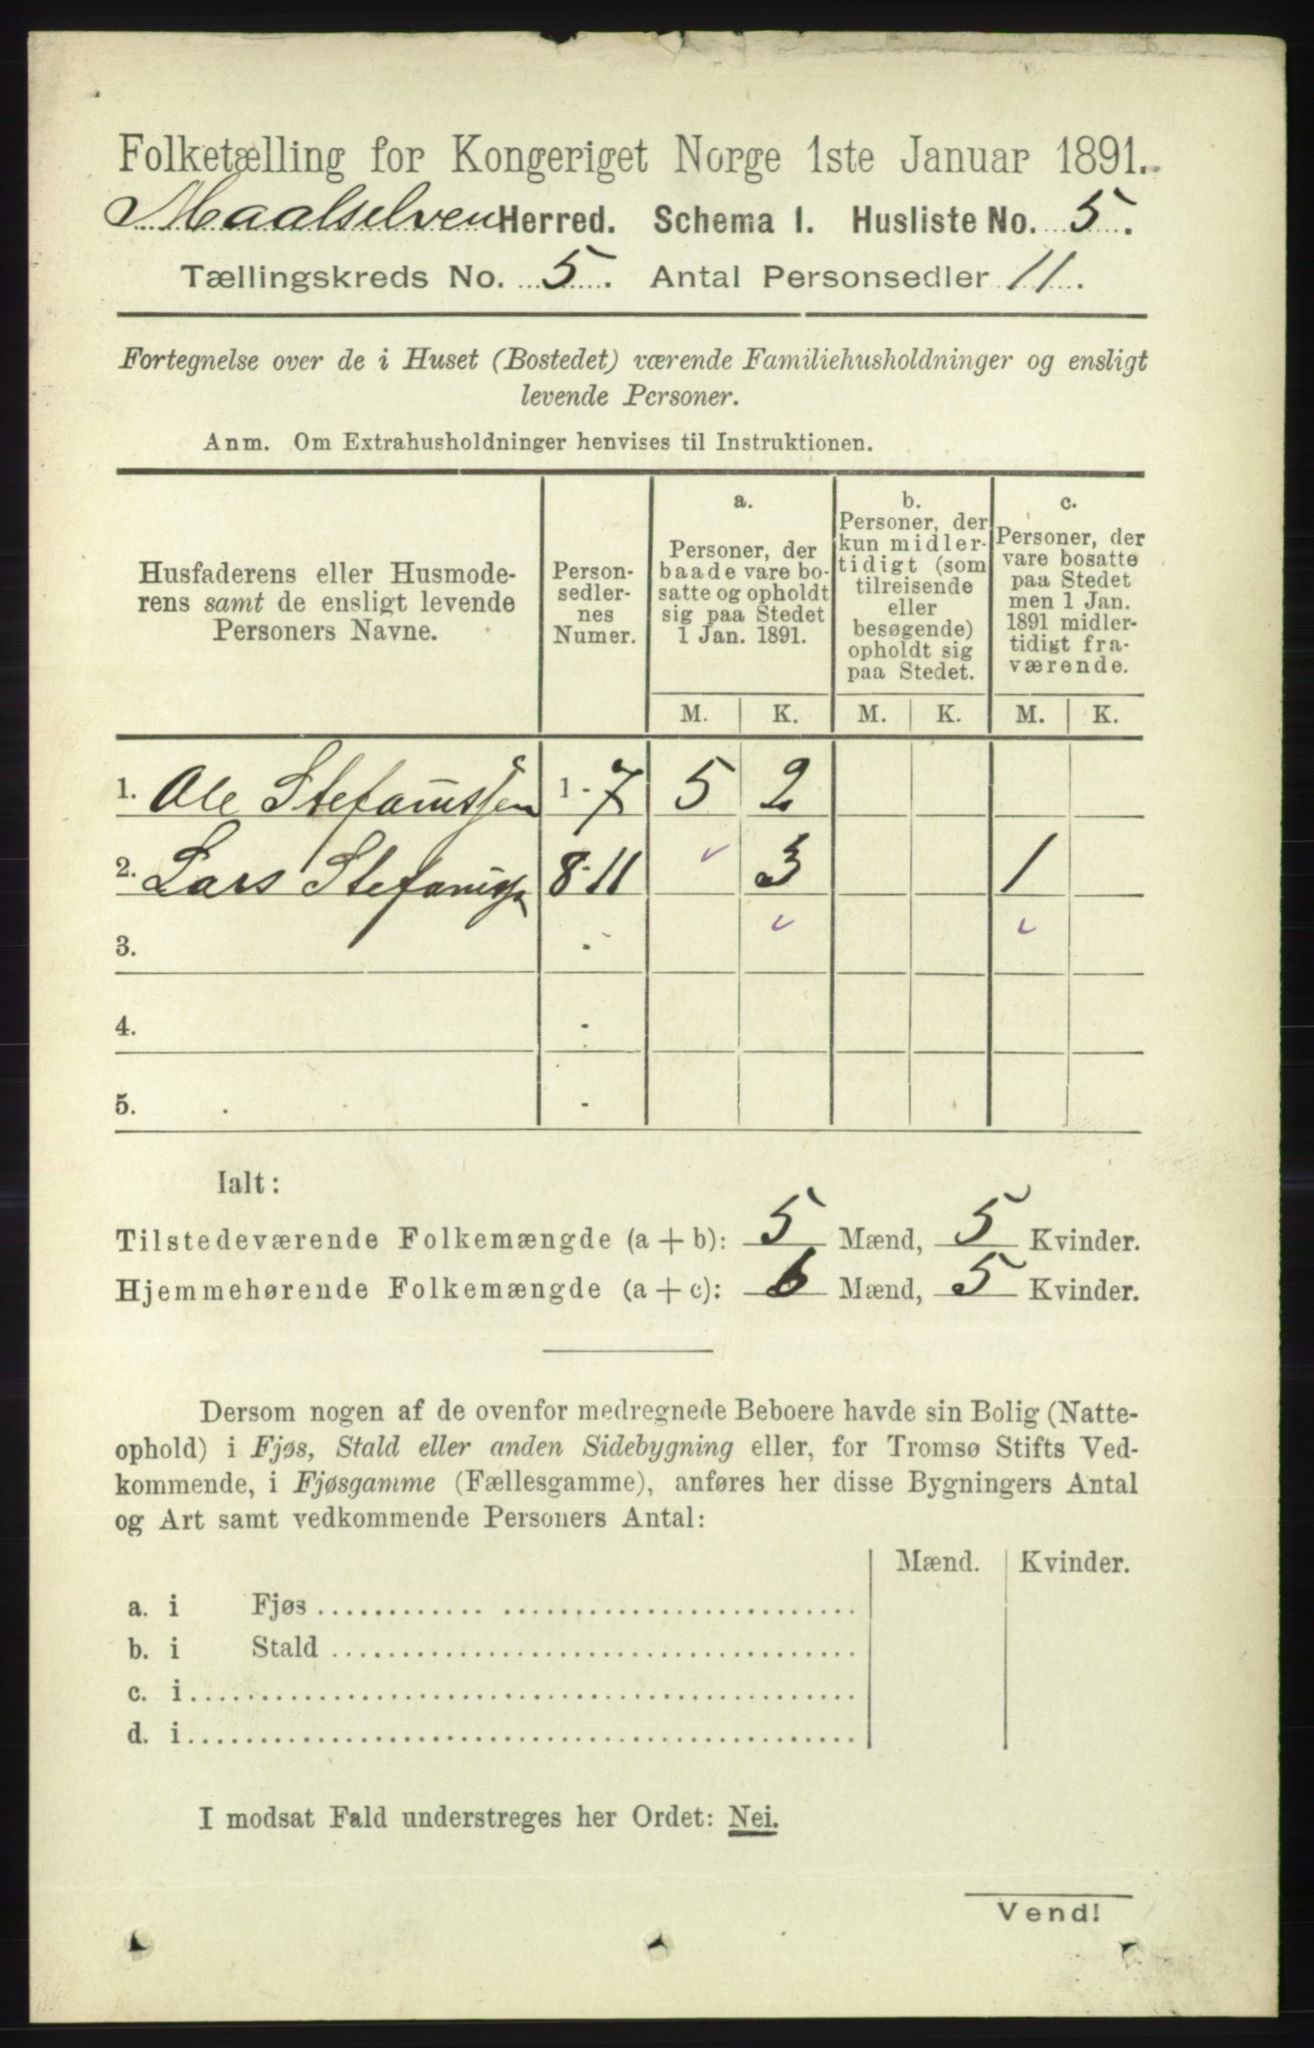 Folketælling for Kongeriget Norge 1ste Januar 1891.
Maalselven Herred. Schema I. Husliste No. 5.
Tællingskreds No. 5. Antal Personsedler 11.
Fortegnelse over de i Huset (Bostedet) værende Familiehusholdninger og ensligt
levende Personer.
Anm. Om Extrahusholdninger henvises til Instruktionen.
Husfaderens eller Husmode-
rens samt de ensligt levende
Personers Navne.
Person-
sedler-
nes
Numer.
a.
Personer, der
baade vare bo-
satte og opholdt
sig paa Stedet
1 Jan. 1891.
b.
Personer, der
kun midler-
tidigt (som
tilreisende
eller
besøgende)
opholdt sig
paa Stedet.
c.
Personer, der
vare bosatte
paa Stedet
men 1 Jan.
1891 midler-
tidigt fra-
værende.
M. K. M. K. M. K.
1. Ole Stefanussen 1-7 5 2
2. Lars Stefanuss 8-11 3 1
3. -
4. -
5. -
Ialt:
Tilstedeværende Folkemængde (a + b): 5 Mænd, 5 Kvinder.
Hjemmehørende Folkemængde (a + c): 6 Mænd, 5 Kvinder.
Dersom nogen af de ovenfor medregnede Beboere havde sin Bolig (Natte-
ophold) i Fjøs, Stald eller anden Sidebygning eller, for Tromsø Stifts Ved-
kommende, i Fjøsgamme (Fællesgamme), anføres her disse Bygningers Antal
og Art samt vedkommende Personers Antal:
Mænd. Kvinder.
a. i Fjøs
b. i Stald
c. i
d. i
I modsat Fald understreges her Ordet: Nei.
Vend!